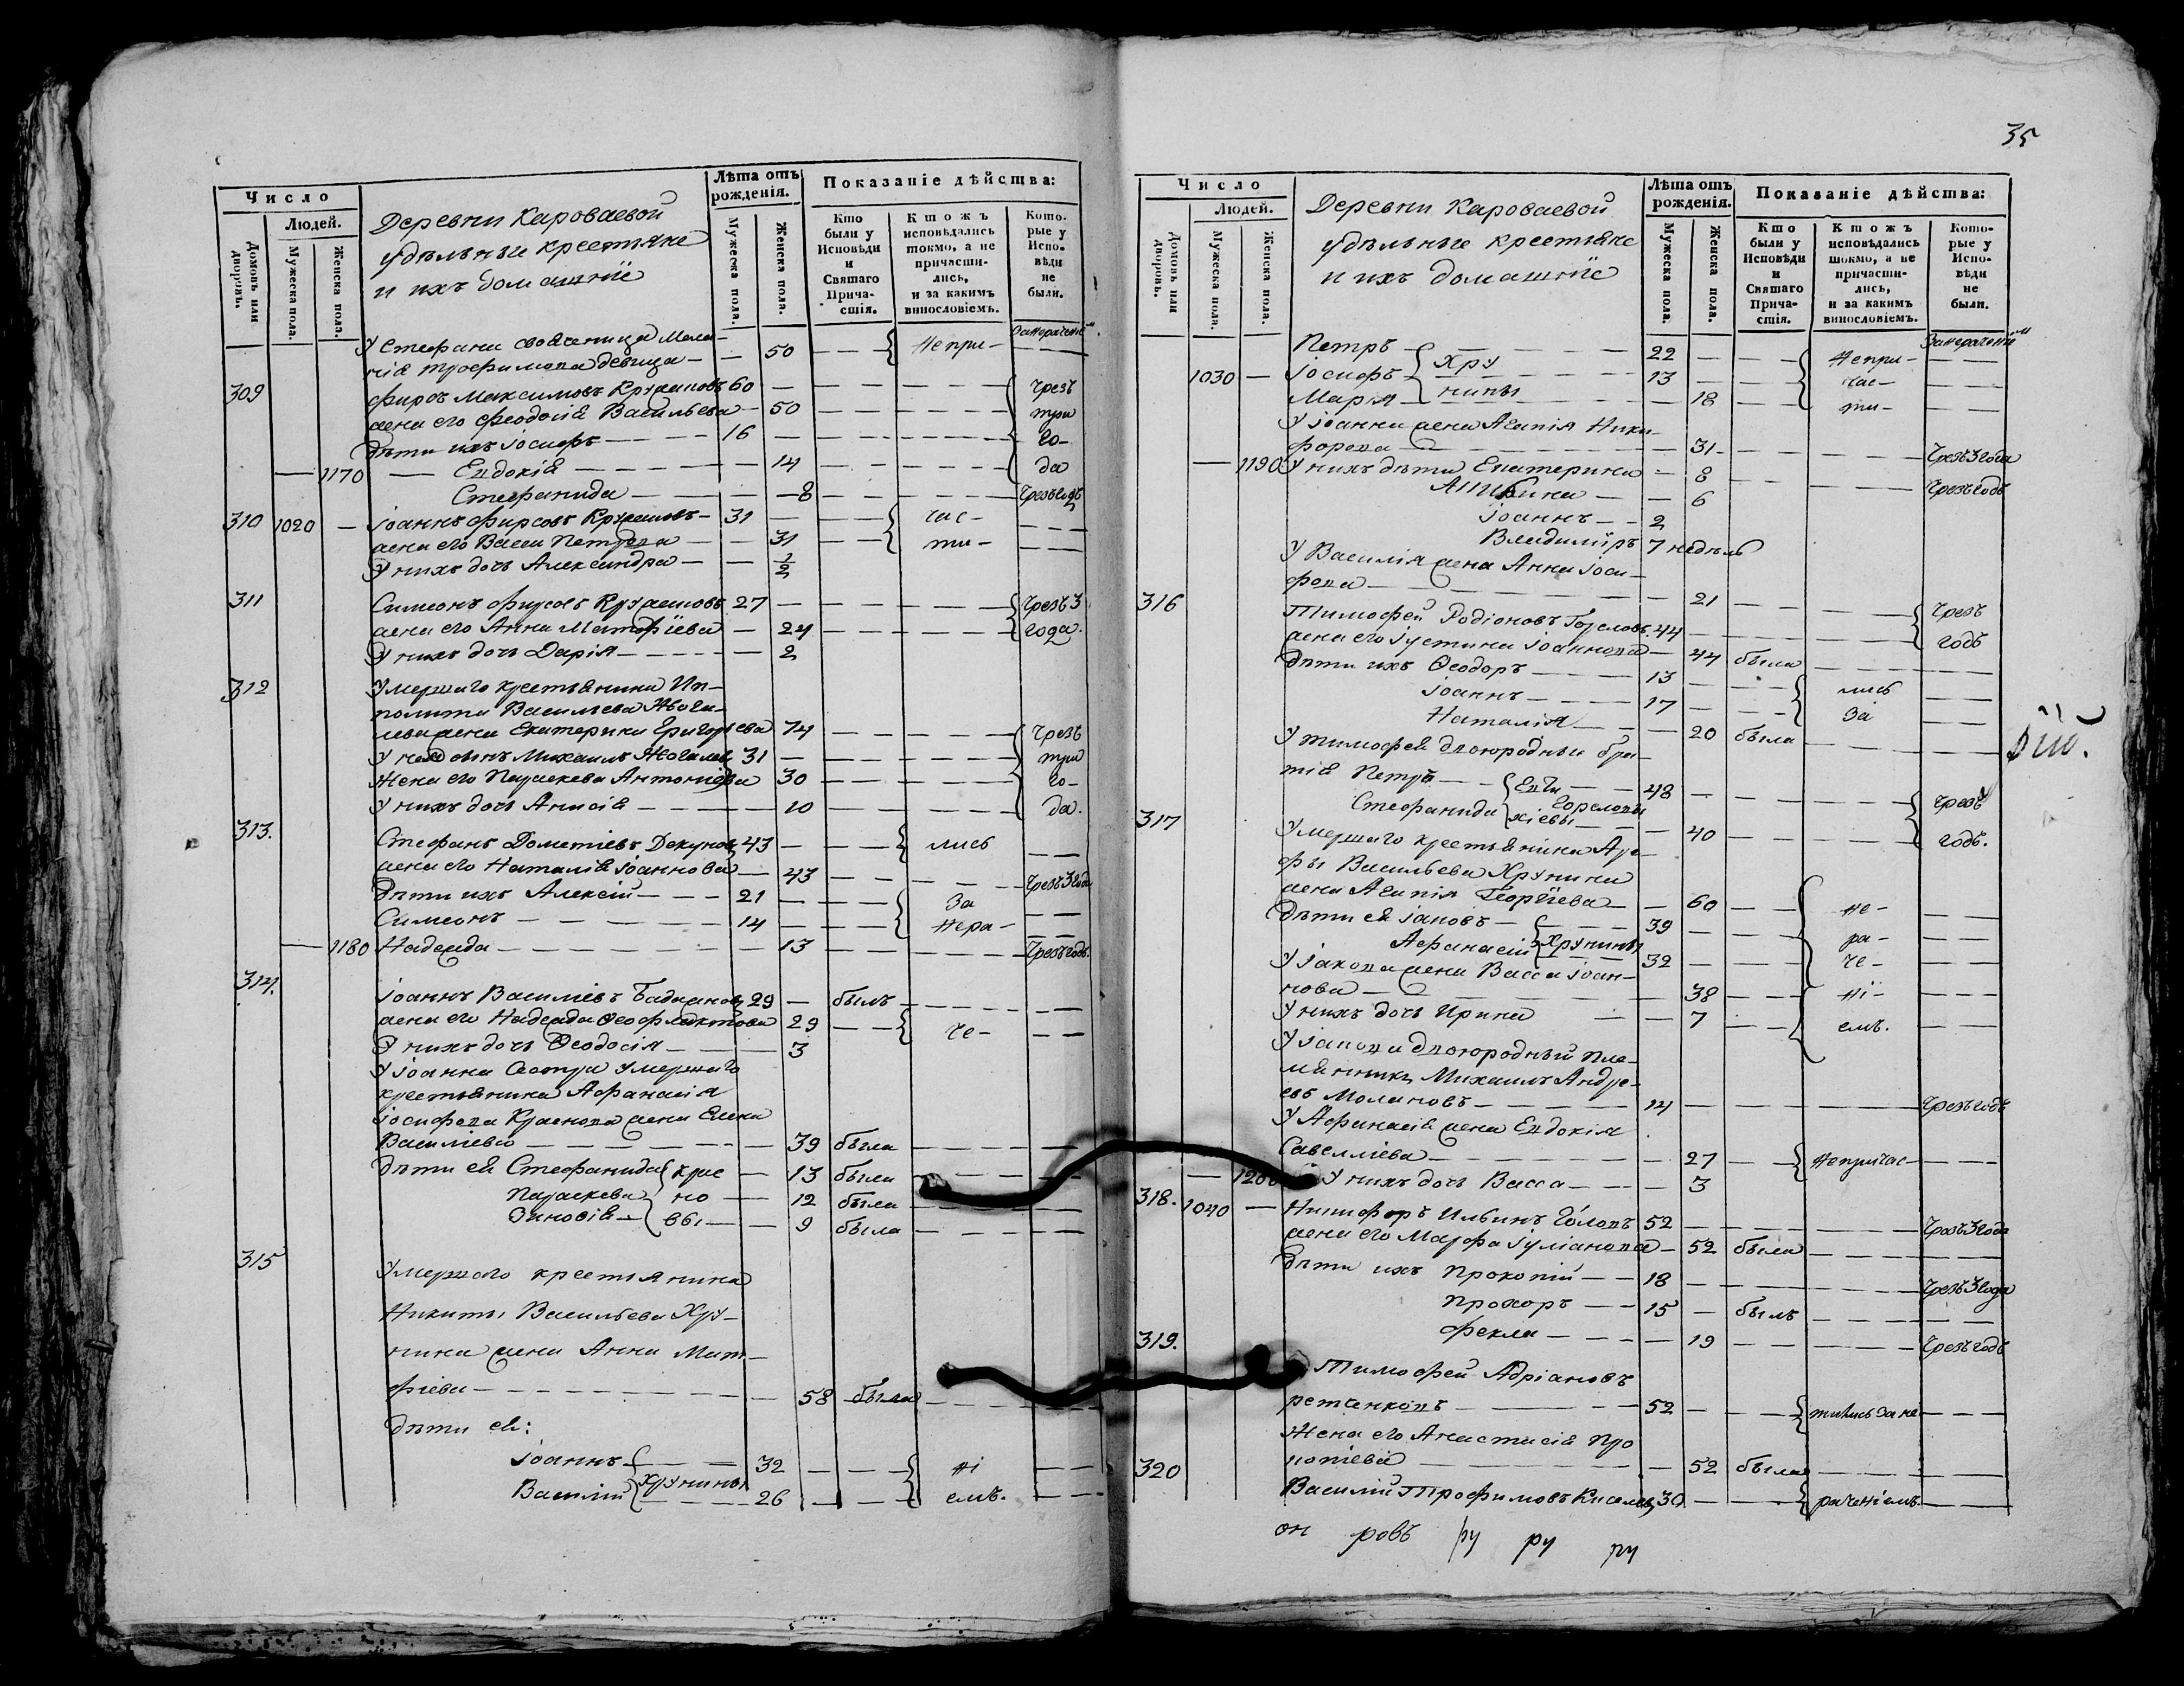 Число
Людей.
Домовъ или дворовъ.
Мужеска пола.
Женска пола.
Деревни Кароваевой
удѣльные крестьяне
и ихъ домашніе
Лѣта отъ рожденія.
Мужеска пола.
Женска пола.
Показаніе дѣйства:
Кто были у Исповѣди и Святаго Прича- стія.
Ктожъ исповѣдались токмо, а не причасти- лись, и за какимъ винословіемъ.
Кото- рые у Испо- вѣди не были.
У Стефана свояченица Мела-
нія Трофимова девица — — 50 — — Непри- — —
309 Фирсъ Максимовъ 60 — — — — чрезъ
жена его Феодосія Васильева — 50 — — — — три
дѣти ихъ Іосифъ — 16 — — — — го-
1170 — Евдокія — — 14 — — — — да
Стефанида — — 8 — — — — Чрезъ годъ
310 1020 — Іоаннъ Фирсовъ — 31 — — — час- — —
жена его Васса Петрова — — 31 — — ти- — —
У нихъ дочь Александра — — 1/2
311 Симеонъ Фирсовъ 27 — — — — Чрезъ 3
жена его Анна Матфіева — 24 — — — — года.
У нихъ дочь Дарія — — 2
312 Умершаго крестьянина Ип-
полита Васильева
жена Екатерина Григорьева 74 — — — — Чрезъ
У нея сынъ Михаилъ 31 — — — — три
Жена его Параскева Антоніева 30 — — — — го-
У нихъ дочь Анисія — — 10 — — — — да.
313. Стефанъ Дометіевъ 43 — — — лись — —
жена его Наталія Іоаннова — 43 — — — — Чрезъ 3 года
Дѣти ихъ Алексій — 21 — — — за — —
Симеонъ — 14 — — — нера- — —
1180 Надежда — — 13 — — — — Чрезъ годъ.
314. Іоаннъ Василіевъ 29 — былъ — — — —
жена его Надежда Феофилактова 29 — — че- — —
У нихъ дочь Феодосія — — 3
У Іоанна сестра умершаго
крестьянина Афанасія
Іосифова Краснова жена Елена
Василіева — — 39 была — — — —
Дѣти ея Стефанида Крас — 13 была — — — —
Параскева но — 12 была — — — —
Зиновія — вы — 9 была — — — —
315 Умершаго крестьянина
Никиты Васильева Хру-
нина жена Анна Мат-
фіева — — 58 была — — — —
дѣти ея:
Іоаннъ — 32 — — — ні — —
Василій Хрунины 26 — — — емъ. — —
35
Число
Людей.
Домовъ или дворовъ.
Мужеска пола.
Женска пола.
Деревни Кароваевой
удѣльные крестьяне
и ихъ домашніе
Лѣта отъ рожденія.
Мужеска пола.
Женска пола.
Показаніе дѣйства:
Кто были у Исповѣди и Святаго Прича- стія.
Ктожъ исповѣдались токмо, а не причасти- лись, и за какимъ винословіемъ.
Кото- рые у Испо- вѣди не были.
Петръ — 22 — — — Непри- — —
1030 — Іосифъ Хру 13 — — — час- — —
Марія — нины — 18 — — ти- — —
У Іоанна жена Агапія Ники-
форова — — 31 — — — — Чрезъ 3 года
1190 У нихъ дѣти Екатерина — 8 — — — — Чрезъ годъ
— — 6
Іоаннъ — 2
Владиміръ 7 недѣль
У Василія жена Анна Іоси-
фова — — 21 — — — —
316 Тимофей Родіоновъ Горѣловъ 44 — — — — Чрезъ
жена его Іустина Іоаннова — 44 была — — годъ
Дѣти ихъ Феодоръ — 13 — — — лись — —
Іоаннъ — 17 — — — за — —
Наталія — — 20 была — — — —
У Тимофея двоюродныи бра-
тія Петръ — Евти 48 — — — — Чрезъ
Стефанида хіевы Горѣловы — 40 — — — — годъ.
317 Умершаго крестьянина
Васильева Хрунина
жена Агапія Георгіева — — 60 — — не- — —
Дѣти ея Іаковъ — 39 — — — ра- — —
Афанасій Хрунины 32 — — — че- — —
У Іакова жена Васса Іоан-
нова — — 38 — — ні- — —
У нихъ дочь Ирина — — 7 — — емъ. — —
У Іакова двоюродный пле-
мянникъ Михаилъ Андре-
евъ Молановъ — 14 — — — — Чрезъ годъ
У Афанасія жена Евдокія
Савелліева — — 27 — — Непричас- — —
У нихъ дочь Васса — — 3
318. 1040 — Никифоръ Ильинъ 52 — — — — Чрезъ 3 года
жена его Марфа Іуліанова — 52 была — — — —
Дѣти ихъ Прокопій — 18 — — — — Чрезъ 3 года
Прохоръ — 15 — былъ — — — —
Фекла — — 19 — — — — Чрезъ годъ
319. Тимофей Адріановъ
52 — — — тились за не — —
Жена его Анастасія Про
копіева — — 52 была — — — —
320 Василій Трофимовъ Киселевъ 30 — — — раченіемъ. — —
ровъ ру ру ру